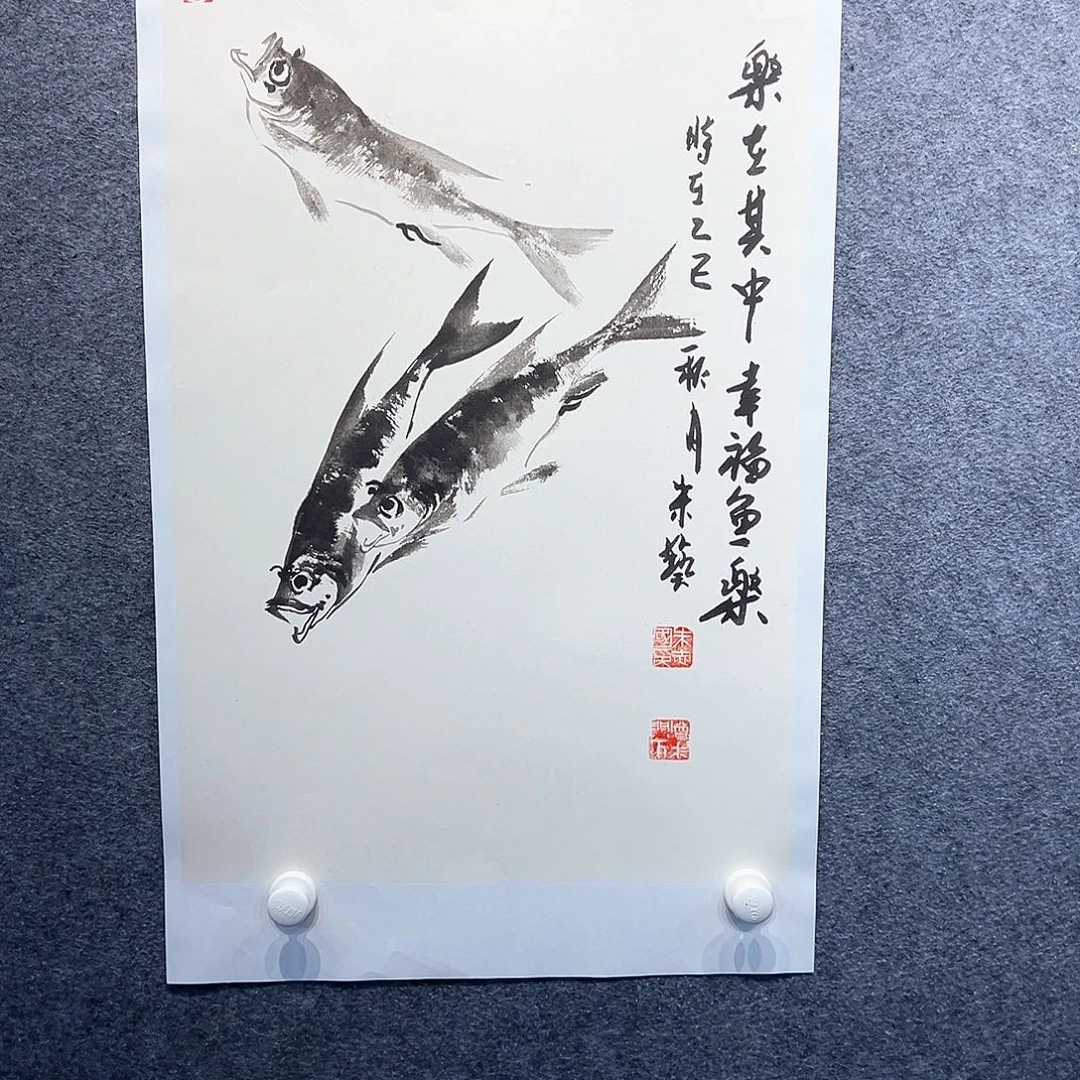 樂在其中幸福魚樂
時在乙巳秋月朱藝